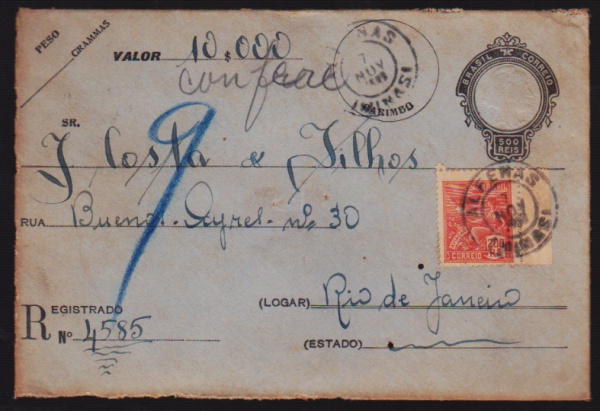 PESO
GRAMMAS
VALOR 10 $ 000
BRASIL CORREIO
500
REIS
NAS
7
NOV
MINAS
CARIMBO
SR.
J. Costa & Filhos
9
ALFENAS
NOV
MINAS
RUA Buenos-Ayres nº 30
CORREIO
REGISTRADO
(LOGAR) Rio de Janeiro
Nº 4585
(ESTADO)